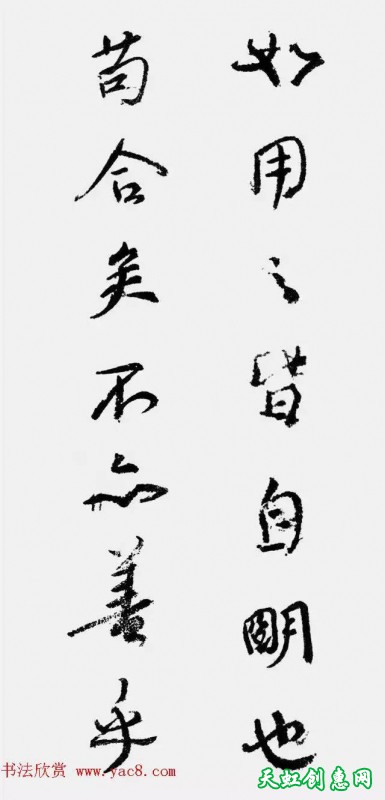 如用之皆自明也
苟合矣不亦善乎
书法欣赏 www.yac8.com
天虹创意网